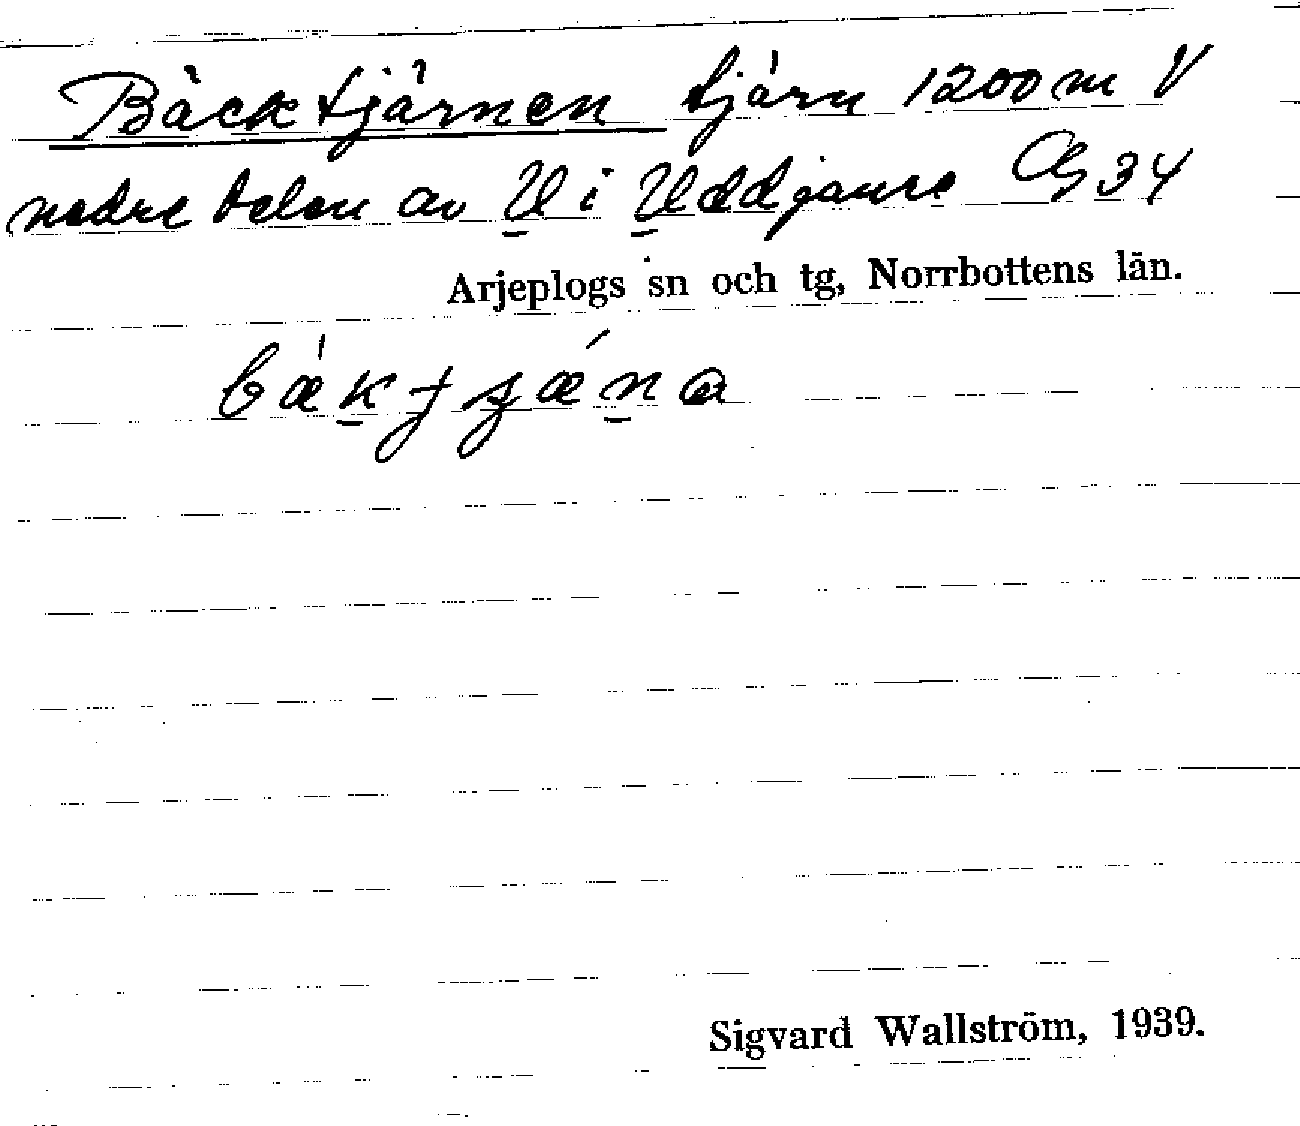 Bäcktjärnen tjärn 1200 m V
nedre delen av U i Uddjaure G34
Arjeplogs sn och tg, Norrbottens län.
Sigvard Wallström, 1939.